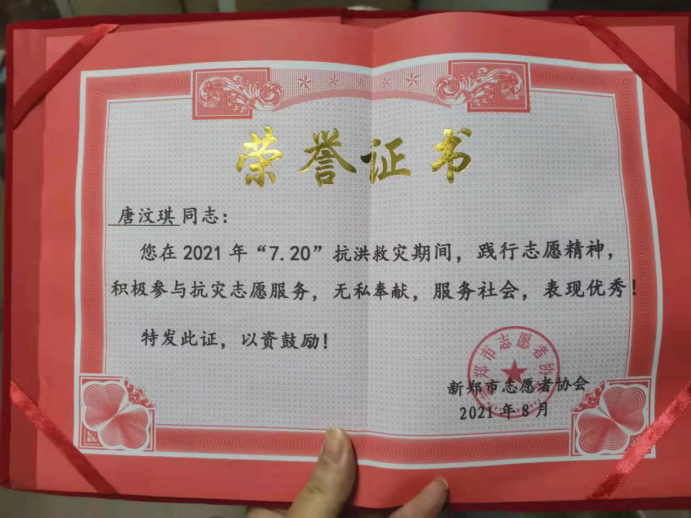 荣誉证书
唐汶琪 同志：
您在2021年“7.20”抗洪救灾期间，践行志愿精神，
积极参与抗灾志愿服务，无私奉献，服务社会，表现优秀！
特发此证，以资鼓励！
新郑市志愿者协会
新郑市志愿者协会
2021年8月